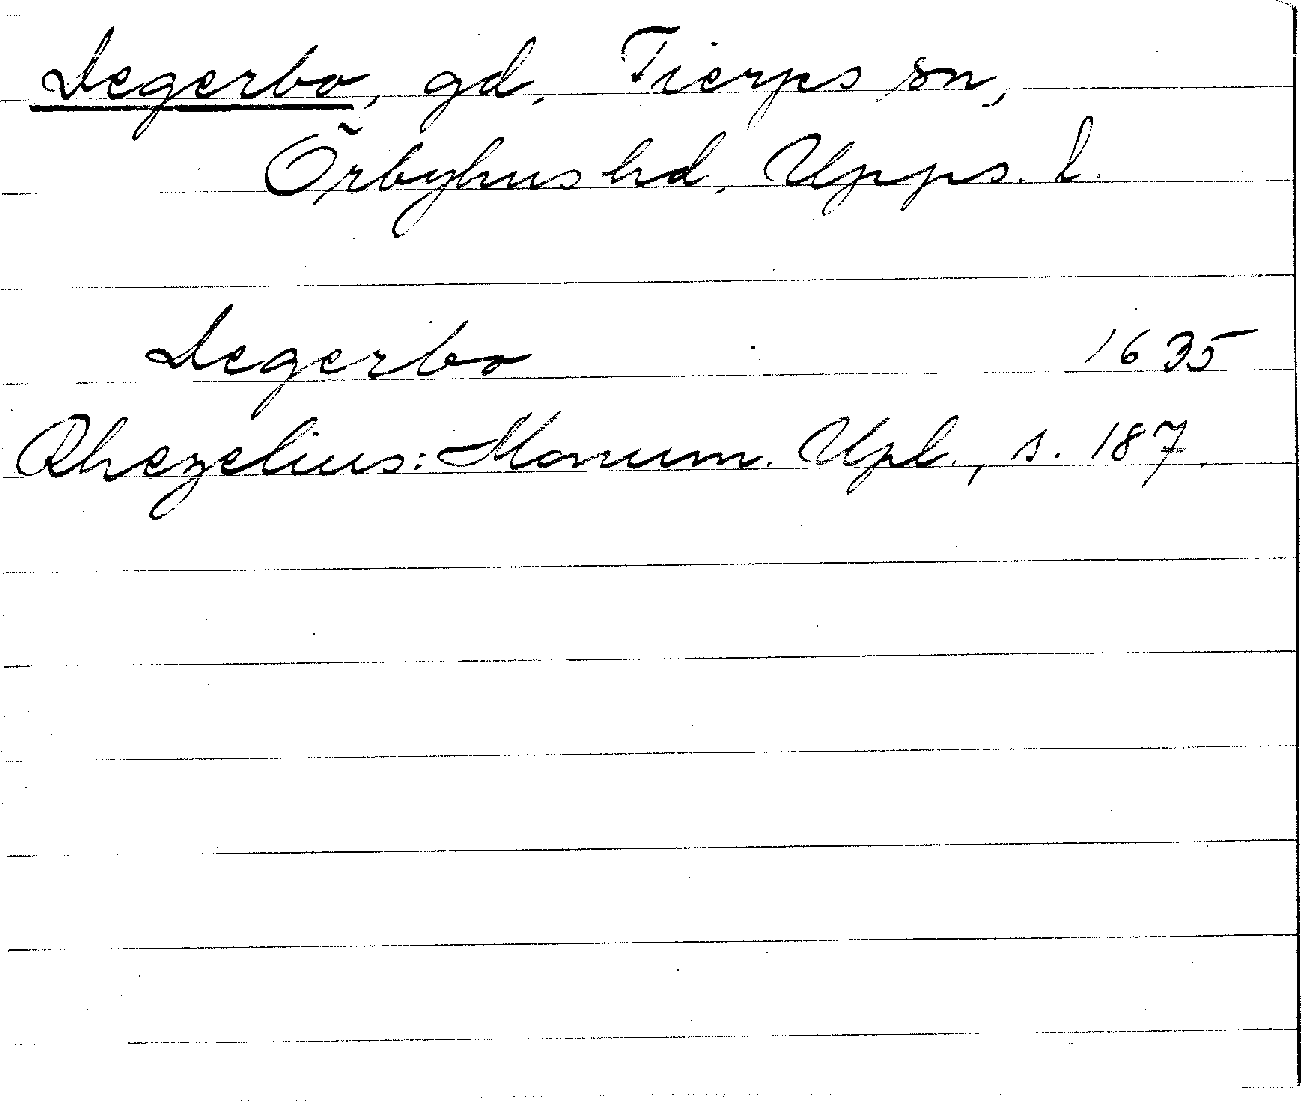 Degerbo, gd, Tierps sn,
Örbyhus hd, Upps. l.
Degerbo 1635
Rhezelius: Monum. Upl., s. 187.